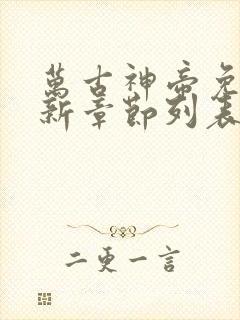 萬古神帝免
新章節列表
二更一言